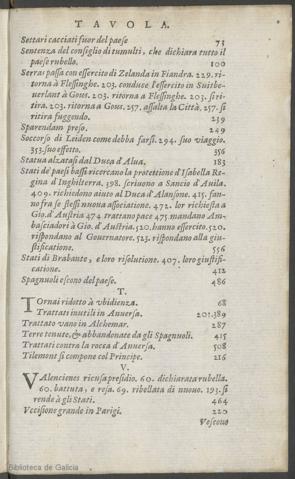 TAVOLA.
Settari cacciati fuor del paese 73
Sentenza del consiglio di tumulti, che dichiara tutto il
paese rubello. 100
Serras passa con essercito di Zelanda in Fiandra. 229. ri-
torna à Flessinghe. 203. conduce l'essercito in Suitbe-
uerlant à Gous. 203. ritorna a Flessinghe. 203. si ri-
tira. 203. ritorna a Gous. 257. assalta la Città. 257. si
ritira fuggendo. 239
Sparendam preso. 249
Soccorso di Leiden come debba farsi. 294. suo viaggio.
353. suo effetto. 356
Statua alzatasi dal Duca d'Alua. 183
Stati de' paesi bassi ricercano la protettione d'Isabella Re-
gina d'Inghilterra. 398. scriuono a Sancio d'Auila.
409. richiedono aiuto al Duca d'Alansone. 415. fan-
no fra se stessi nuoua associatione. 472. lor richiesta a
Gio. d'Austria 474. trattano pace 475. mandano Am-
basciadori à Gio. d'Austria. 520. hanno essercito. 520.
rispondano al Gouernatore. 523. rispondano alla giu-
stificatione. 556
Stati di Brabante, e loro risolutione. 407. loro giustifi-
catione. 412
Spagnuoli escono del paese. 486
T.
Tornai ridotto à vbidienza. 68
Trattati inutili in Anuersa. 201.389
Trattato vano in Alchemar. 287
Terre tenute, & abbandonate da gli Spagnuoli. 415
Trattati contra la rocca d'Anuersa. 508
Tilemont si compone col Principe. 216
V.
Valencienes ricusa presidio. 60. dichiarata rubella.
60. battuta, e resa. 69. ribellata di nuouo. 193. si
rende à gli Stati. 464
Vccisione grande in Parigi. 220
Vescouo
Biblioteca de Galicia